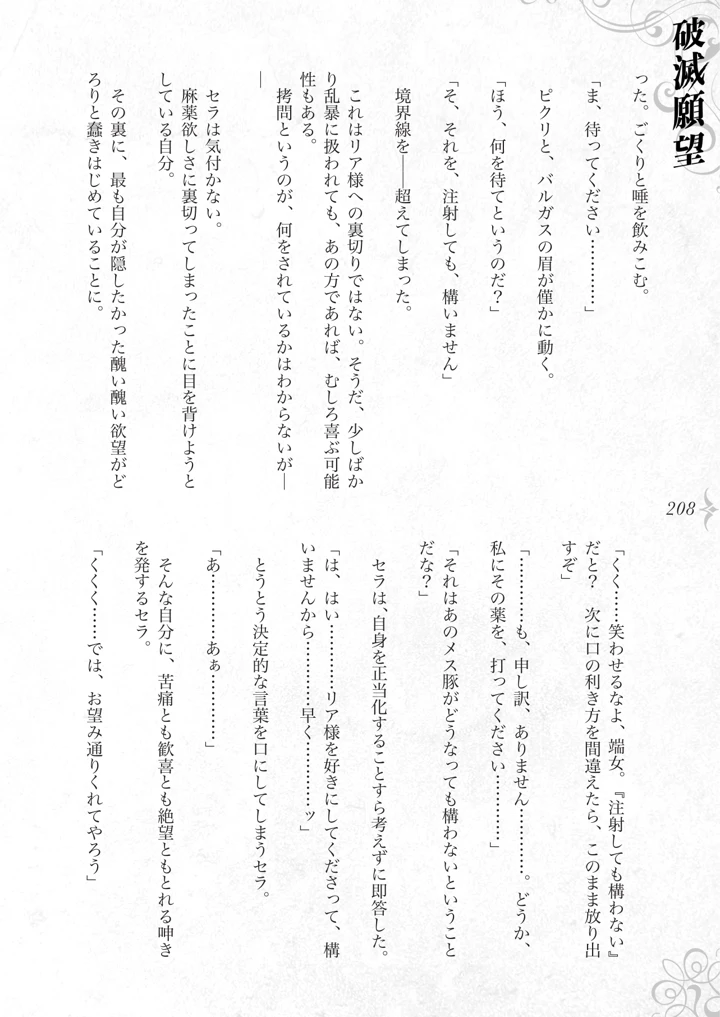 破滅願望
った。ごくりと唾を飲みこむ。
「ま、待ってください…………」
ピクリと、バルガスの眉が僅かに動く。
「ほう、何を待てというのだ？」
「そ、それを、注射しても、構いません」
境界線を――超えてしまった。
これはリア様への裏切りではない。そうだ、少しばか
り乱暴に扱われても、あの方であれば、むしろ喜ぶ可能
性もある。
拷問というのが、何をされているかはわからないが―
―
セラは気付かない。
麻薬欲しさに裏切ってしまったことに目を背けようと
している自分。
その裏に、最も自分が隠したかった醜い醜い欲望がど
ろりと蠢きはじめていることに。
208
「くく……笑わせるなよ、端女。『注射しても構わない』
だと？　次に口の利き方を間違えたら、このまま放り出
すぞ」
「…………も、申し訳、ありません…………。どうか、
私にその薬を、打ってください…………」
「それはあのメス豚がどうなっても構わないということ
だな？」
セラは、自身を正当化することすら考えずに即答した。
「は、はい…………リア様を好きにしてくださって、構
いませんから…………早く…………ッ」
とうとう決定的な言葉を口にしてしまうセラ。
「あ…………あぁ…………」
そんな自分に、苦痛とも歓喜とも絶望ともとれる呻き
を発するセラ。
「くくく……では、お望み通りくれてやろう」